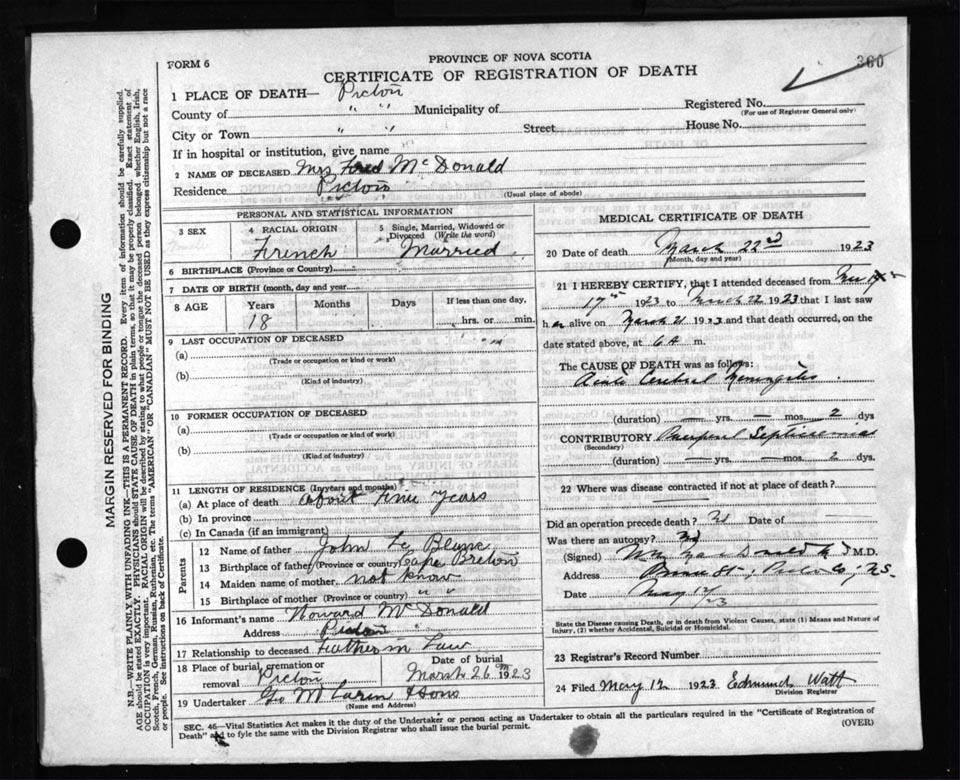 FORM 6
PROVINCE OF NOVA SCOTIA
360
CERTIFICATE OF REGISTRATION OF DEATH
1 PLACE OF DEATH— Pictou
County of " " Municipality of
Registered No.
(For use of Registrar General only)
City or Town " " Street House No.
If in hospital or institution, give name
2 NAME OF DECEASED Mrs Fred McDonald
Residence Pictou
(Usual place of abode)
PERSONAL AND STATISTICAL INFORMATION
3 SEX
4 RACIAL ORIGIN
French
5 Single, Married, Widowed or Divorced (Write the word)
Married
6 BIRTHPLACE (Province or Country)
7 DATE OF BIRTH (month, day and year)
8 AGE Years Months Days If less than one day,
18 hrs. or min.
9 LAST OCCUPATION OF DECEASED
(a)
(Trade or occupation or kind or work)
(b)
(Kind of industry)
10 FORMER OCCUPATION OF DECEASED
(a)
(Trade or occupation or kind of work)
(b)
(Kind of industry)
11 LENGTH OF RESIDENCE (In years and months)
(a) At place of death about Years
(b) In province
(c) In Canada (if an immigrant)
Parents
12 Name of father John Le Blanc
13 Birthplace of father (Province or country) Cape Breton
14 Maiden name of mother not know
15 Birthplace of mother (Province or country) " "
16 Informant's name Howard McDonald
Address Pictou
17 Relationship to deceased Father in Law
18 Place of burial, cremation or removal Pictou
Date of burial
March 26 1923
19 Undertaker & Sons
(Name and Address)
MEDICAL CERTIFICATE OF DEATH
20 Date of death March 22nd 1923
(Month, day and year)
21 I HEREBY CERTIFY, that I attended deceased from
17th 1923 to March 22 1923 that I last saw
h er alive on March 21 1923 and that death occurred, on the
date stated above, at 6 A m.
The CAUSE OF DEATH was as follows:
Acute Cerebral Meningitis
(duration) — yrs. — mos. 2 dys
CONTRIBUTORY Puerperal Septicemia
(Secondary)
(duration) — yrs. — mos. 2 dys.
22 Where was disease contracted if not at place of death?
Did an operation precede death? Date of
Was there an autopsy?
(Signed) M.D.
Address N.S.
Date May 12/23
State the Disease causing Death, or in death from Violent Causes, state (1) Means and Nature of
Injury, (2) whether Accidental, Suicidal or Homicidal.
23 Registrar's Record Number
24 Filed May 12 1923 Edmund Watt
Division Registrar
SEC. 46—Vital Statistics Act makes it the duty of the Undertaker or person acting as Undertaker to obtain all the particulars required in the "Certificate of Registration of
Death" and to fyle the same with the Division Registrar who shall issue the burial permit.
(OVER)
MARGIN RESERVED FOR BINDING
N.B.—WRITE PLAINLY, WITH UNFADING INK—THIS IS A PERMANENT RECORD. Every item of information should be carefully supplied.
AGE should be stated EXACTLY. PHYSICIANS should STATE CAUSE OF DEATH in plain terms, so that it may be properly classified. Exact statement of
OCCUPATION is very important. RACIAL ORIGIN will be described by stating to what people or tongue the deceased person belonged, whether English, Irish,
Scotch, French, German, Russian, Ruthenian, etc. The terms "AMERICAN" or "CANADIAN" MUST NOT BE USED as they express citizenship but not a race
or people. See instructions on back of Certificate.